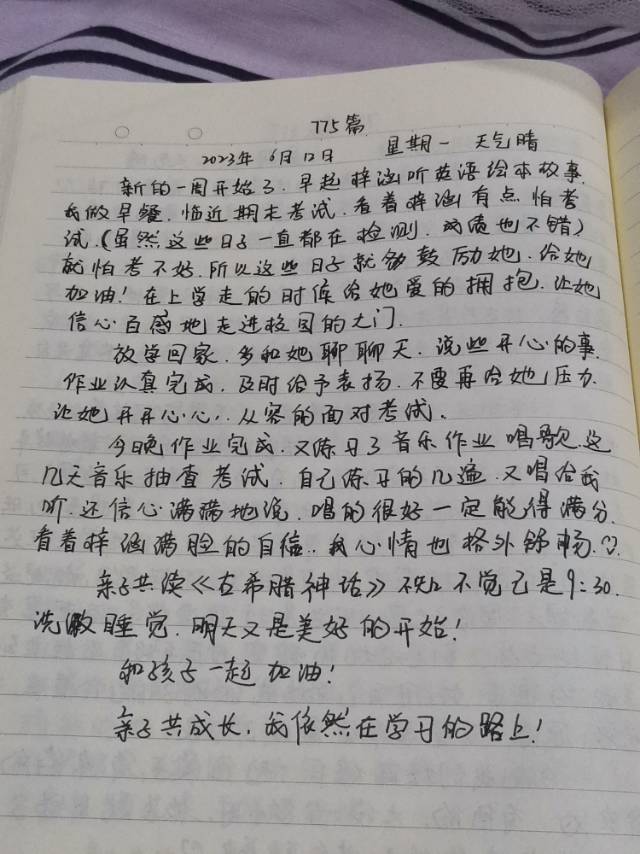 775篇
2023年 6月12日 星期一 天气晴
新的一周开始了.早起梓涵听英语绘本故事.
我做早餐.临近期末考试.看着梓涵有点怕考
试.(虽然这些日子一直都在检测.成绩也不错)
就怕考不好.所以这些日子就多鼓励她.给她
加油!在上学走的时候给她爱的拥抱.让她
信心百感地走进校园的大门.
放学回家.多和她聊聊天.说些开心的事.
作业认真完成.及时给予表扬.不要再给她压力.
让她开开心心.从容的面对考试.
今晚作业完成.又练习了音乐作业唱歌.这
几天音乐抽查考试.自己练习的几遍.又唱给我
听.还信心满满地说.唱的很好一定能得满分.
看着梓涵满脸的自信..我心情也格外舒畅.
亲子共读《古希腊神话》不知不觉已是9:30.
洗漱睡觉.明天又是美好的开始!
和孩子一起加油!
亲子共成长.我依然在学习的路上!